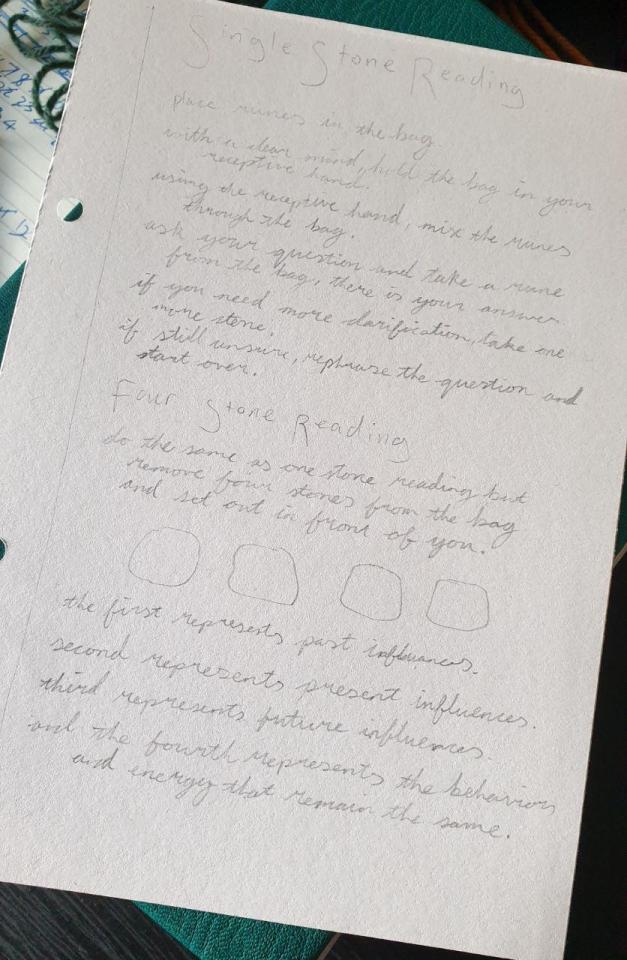 Single Stone Reading
place runes in the bag.
with a clear mind, hold the bag in your
receptive hand.
using the receptive hand, mix the runes
through the bag.
ask your question and take a rune
from the bag, there is your answer
if you need more clarification, take one
more stone.
if still unsure, rephrase the question and
start over.
Four Stone Reading
do the same as one stone reading but
remove four stones from the bag
and set out in front of you.
the first represents past influences.
second represents present influences.
third represents future influences.
and the fourth represents the behaviors
and energy that remain the same.